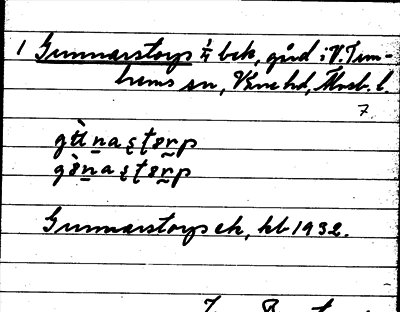 1 Gunnarstorps 1/4 bek, gård i V. Tun-
hems sn, Väne hd, Älvsb. l.
7.
gù̵naʂʈərp
gɵ̀naʂʈərp
Gunnarstorp ek, kb 1932.